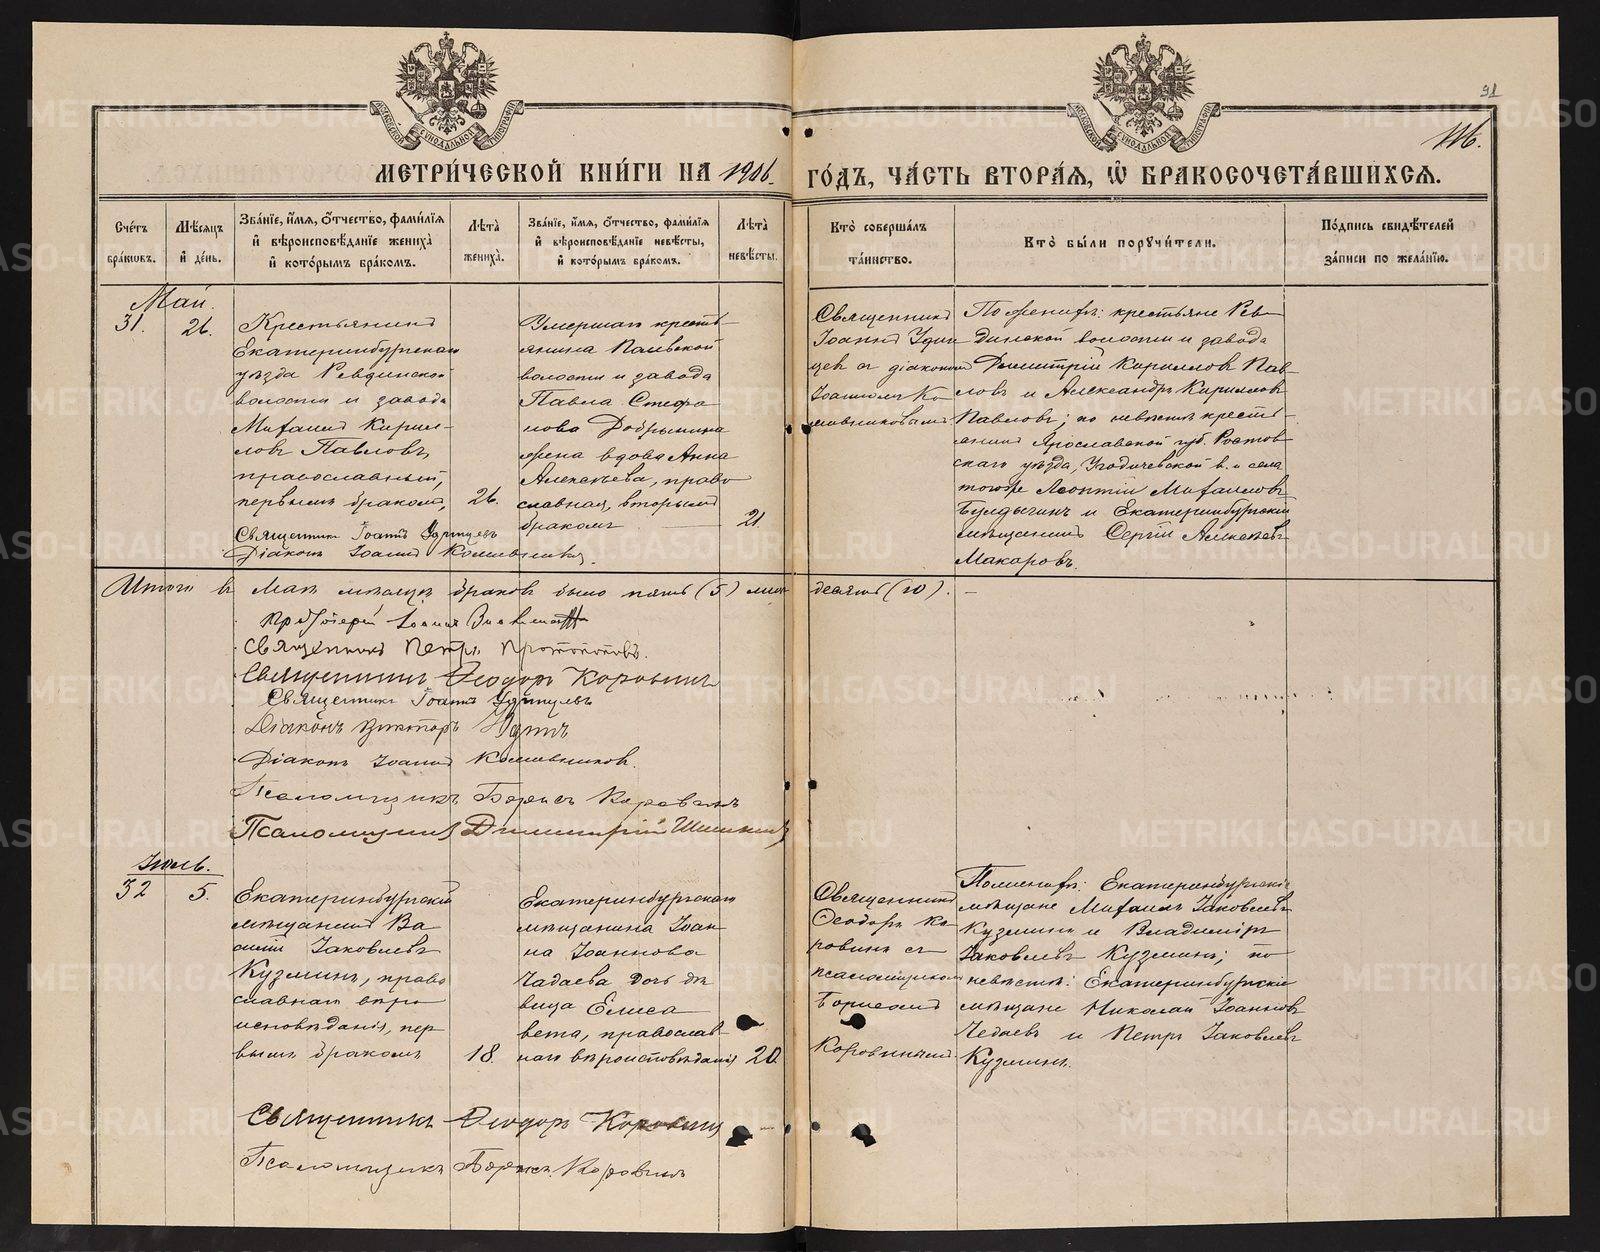 91
116.
МЕТРИ́ЧЕСКОЙ КНИ́ГИ НА 1906
ГО́ДЪ, ЧА́СТЬ ВТОРА́Я, Ѡ БРАКОСОЧЕТА́ВШИХСЯ.
Сче́тъ бра́кѡвъ.
Мѣ́сяцъ и де́нь.
Зва́нїе, и́мя, ѻ́тчество, фами́лїя
и вѣроисповѣ́данїе жениха̀
и кото́рымъ бра́комъ.
Лѣта̀ жениха̀.
Зва́нїе, и́мя, ѻ́тчество, фами́лїя
и вѣроисповѣ́данїе невѣ́сты,
и кото́рымъ бра́комъ.
Лѣта̀ невѣ́сты.
Кто̀ соверша́лъ
та́инство.
Кто̀ бы́ли порꙋчи́тели.
По́дпись свидѣ́телей
за́писи по жела́нїю.
Май.
31.
26.
Крестьянинъ
Екатеринбургскаго
уѣзда Ревдинской
волости и завода
Михаилъ Кирил-
ловъ Павловъ,
православный,
первымъ бракомъ,
26.
Умершаго кресть-
янина Полевской
волости и завода
Павла Стефа
нова Добрынина
жена вдова Анна
Алексѣева, право
славная, вторымъ
бракомъ
21.
Священникъ
Іоаннъ Удин
цевъ съ діакономъ
Іоанномъ Ко
По женихѣ: крестьяне Рев-
динской волости и завода
Димитрій Кирилловъ Пав-
ловъ и Александръ Кирилловъ
Павловъ; по невѣстѣ кресть-
янинъ Ярославской губ. Ростов
скаго уѣзда, Угодичевской в. и села
того же Леонтій Михаиловъ
Булдыгинъ и Екатеринбургскій
мѣщанинъ Сергій Алексѣевъ
Макаровъ.
Священникъ Іоаннъ Удинцевъ
Діаконъ Іоаннъ
Итого въ Маѣ мѣсяцѣ браковъ было пять (5) лицъ десять (10).
Протоіерей Іоаннъ
Священникъ Петръ Протопоповъ.
Священникъ Ѳеодоръ Коровинъ
Священникъ Іоаннъ Удинцевъ
Діаконъ Викторъ Удинъ
Діаконъ Іоаннъ
Псаломщикъ Борисъ Коровинъ
Псаломщикъ Димитрій Шишкинъ
Іюль.
32
5.
Екатеринбургскій
мѣщанинъ Ва
силій Іаковлевъ
Кузминъ, право
славнаго вѣро
исповѣданія, пер
вымъ бракомъ
18.
Екатеринбургскаго
мѣщанина Іоан
на Іоаннова
Чадаева дочь дѣ
вица Елиса
вета, православ
наго вѣроисповѣданія
20.
Священникъ
Ѳеодоръ Ко
ровинъ съ
псаломщикомъ
Борисомъ
Коровинымъ
По женихѣ: Екатеринбургскіе
мѣщане Михаилъ Іаковлевъ
Кузминъ и Владиміръ
Іаковлевъ Кузминъ; по
невѣстѣ: Екатеринбургскіе
мѣщане Николай Іоанновъ
Чадаевъ и Петръ Іаковлевъ
Кузминъ.
Священникъ Ѳеодоръ Коровинъ
Псаломщикъ Борисъ Коровинъ
METRIKI.GASO-URAL.RU